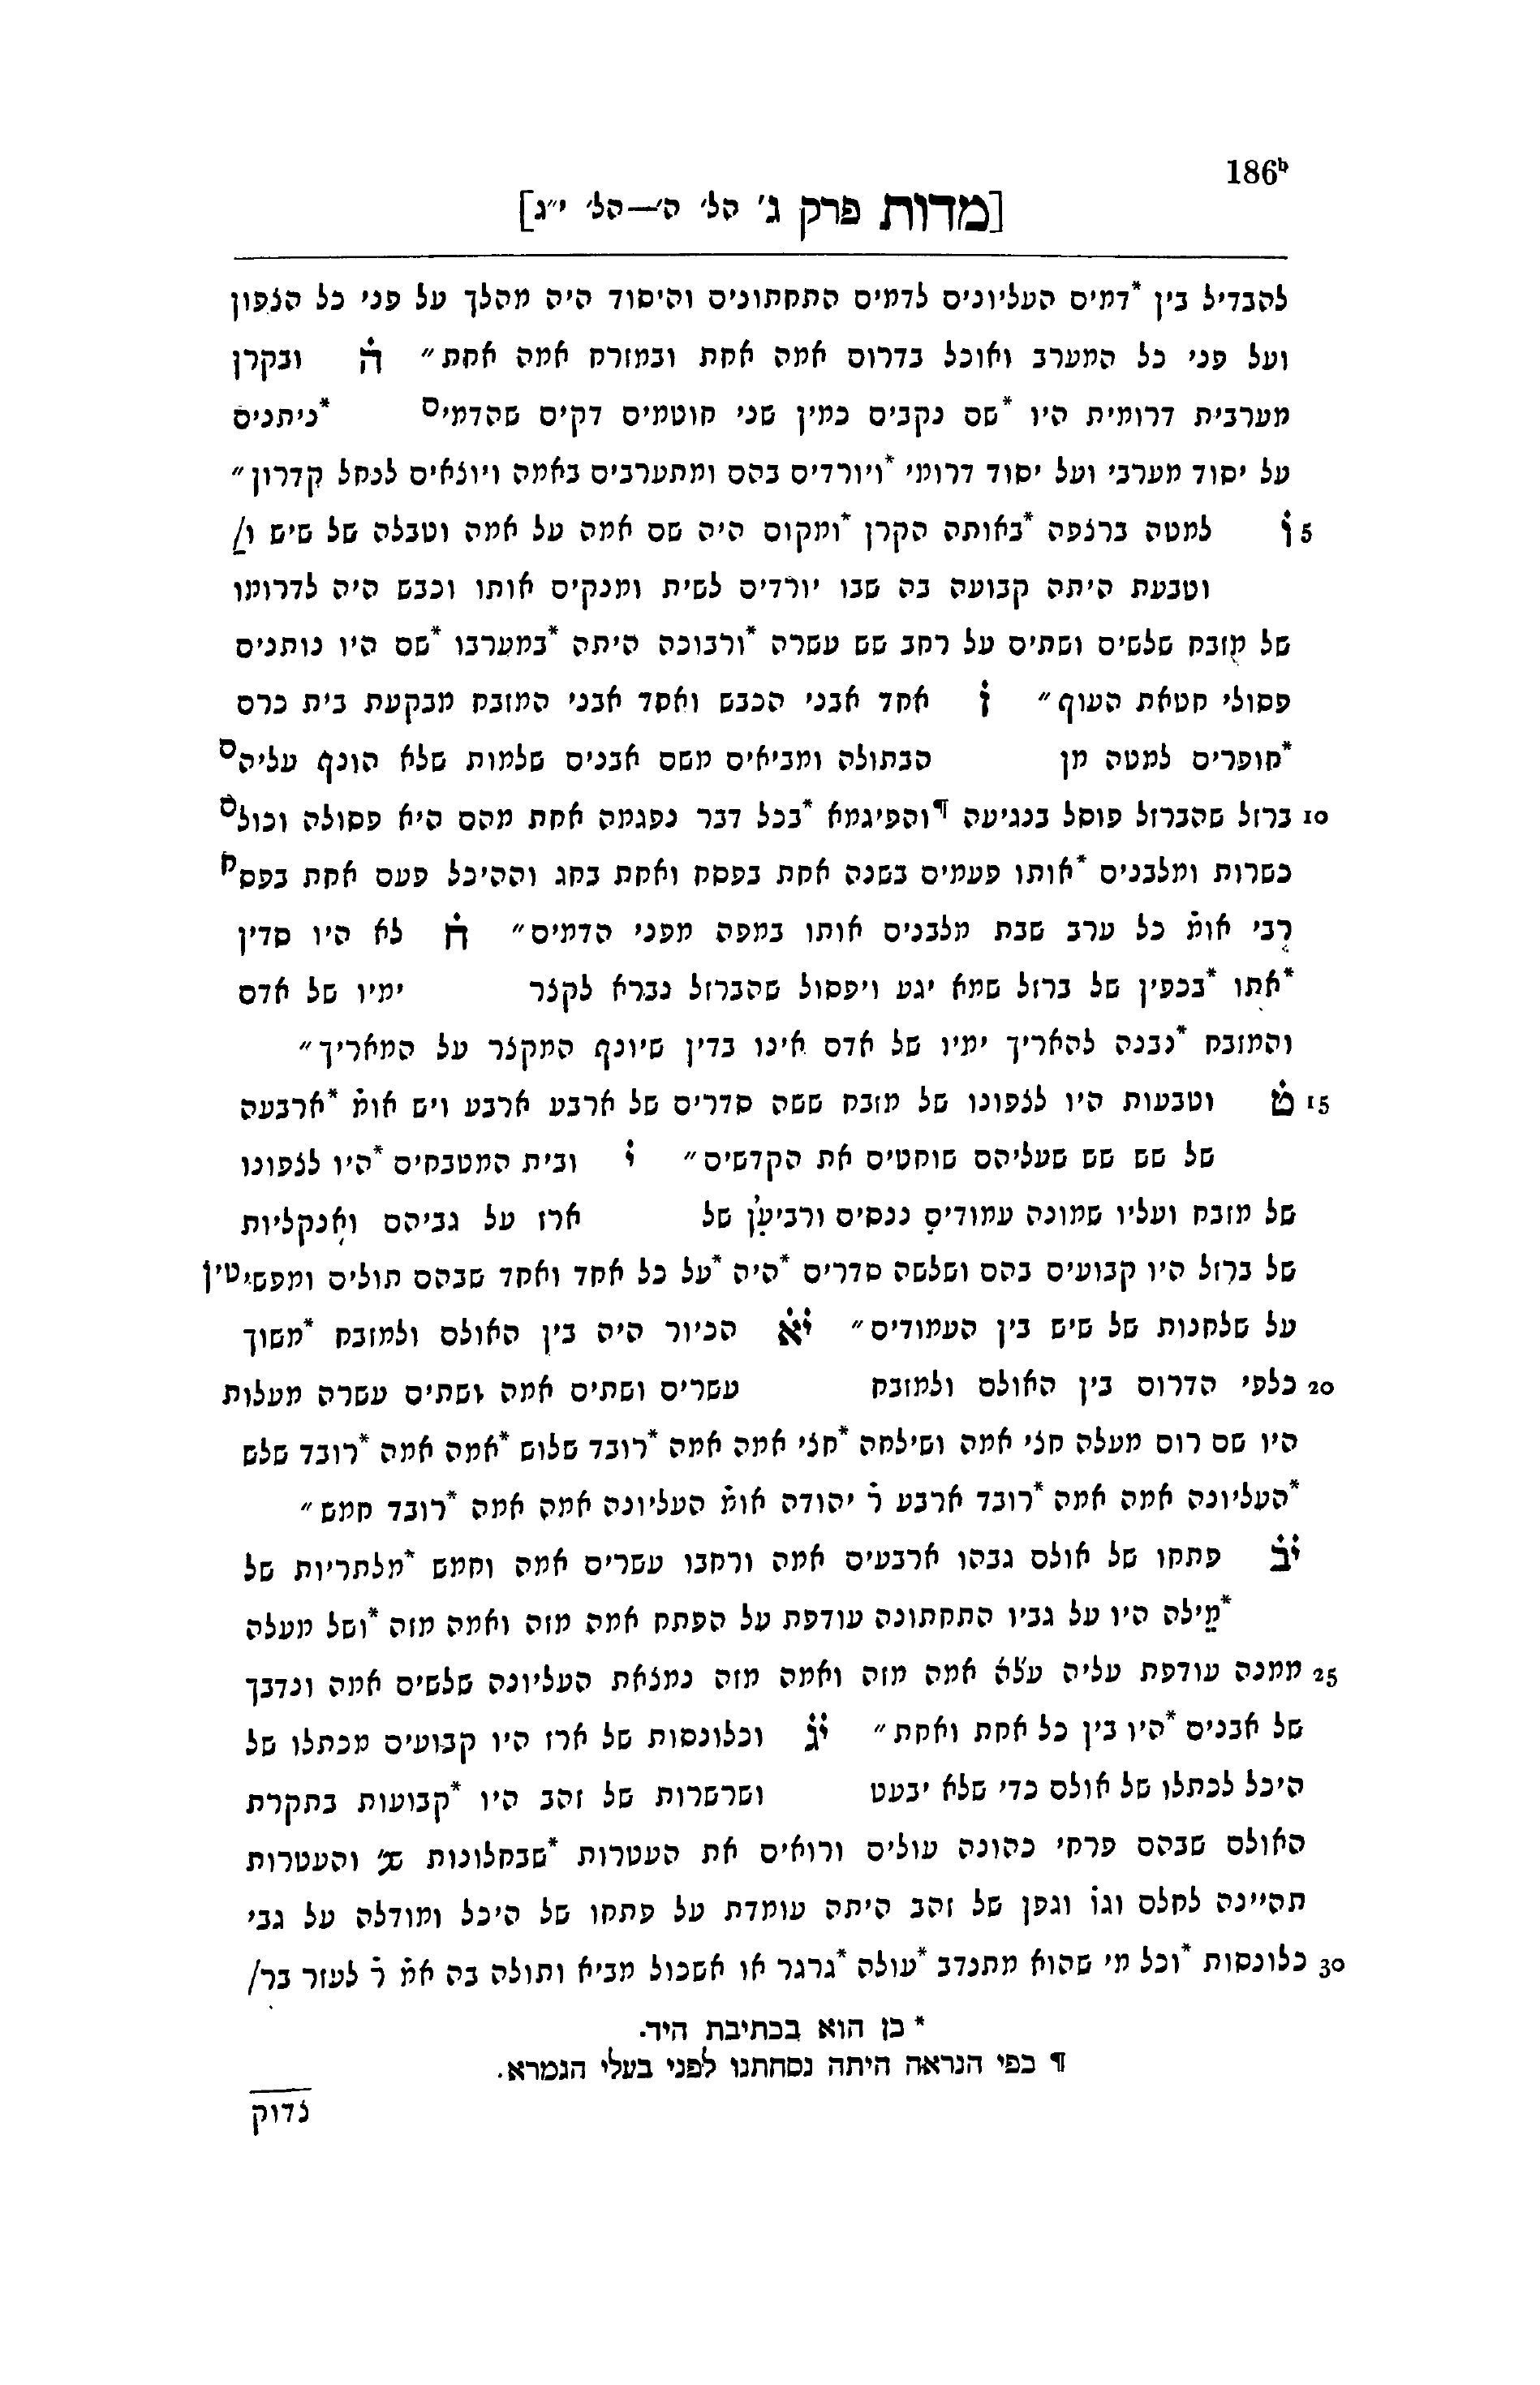 186ᵇ
[מדות פרק ג' הל' ה'—הל' י״ג]
להבדיל בין *דמים העליונים לדמים התחתונים והיסוד היה מהלך על פני כל הצפון
ועל פני כל המערב ואוכל בדרום אמה אחת ובמזרח אמה אחת״ ה ובקרן
מערבית דרומית היו *שם נקבים כמין שני חוטמים דקים שהדמים *ניתנים
על יסוד מערבי ועל יסוד דרומי *ויורדים בהם ומתערבים באמה ויוצאים לנחל קדרון״
5 ו למטה ברצפה *באותה הקרן *ומקום היה שם אמה על אמה וטבלה של שיש ו/
וטבעת היתה קבועה בה שבו יורדים לשית ומנקים אותו וכבש היה לדרומו
של מזבח שלשים ושתים על רחב שש עשרה *ורבוכה היתה *במערבו *שם היו נותנים
פסולי חטאת העוף״ ז אחד אבני הכבש ואחד אבני המזבח מבקעת בית כרם
*חופרים למטה מן הבתולה ומביאים משם אבנים שלמות שלא הונף עליהם
10 ברזל שהברזל פוסל בנגיעה ¶והפיגמא *בכל דבר נפגמה אחת מהם היא פסולה וכולם
כשרות ומלבנים *אותו פעמים בשנה אחת בפסח ואחת בחג וההיכל פעם אחת בפסח
רבי אומ̇ כל ערב שבת מלבנים אותו במפה מפני הדמים״ ח לא היו סדין
*אתו *בכפין של ברזל שמא יגע ויפסול שהברזל נברא לקצר ימיו של אדם
והמזבח *נבנה להאריך ימיו של אדם אינו בדין שיונף המקצר על המאריך״
15 ט וטבעות היו לצפונו של מזבח ששה סדרים של ארבע ארבע ויש אומ̇ *ארבעה
של שש שש שעליהם שוחטים את הקדשים״ י ובית המטבחים *היו לצפונו
של מזבח ועליו שמונה עמודים ננסים ורביעין של ארז על גביהם ואנקליות
של ברזל היו קבועים בהם ושלשה סדרים *היה *על כל אחד ואחד שבהם תולים ומפשיטין
על שלחנות של שיש בין העמודים״ יא הכיור היה בין האולם ולמזבח *משוך
20 כלפי הדרום בין האולם ולמזבח עשרים ושתים אמה ושתים עשרה מעלות
היו שם רום מעלה חצי אמה ושילחה *חצי אמה אמה *רובד שלוש *אמה אמה *רובד שלש
*העליונה אמה אמה *רובד ארבע ר̇ יהודה אומ̇ העליונה אמה אמה *רובד חמש״
יב פתחו של אולם גבהו ארבעים אמה ורחבו עשרים אמה וחמש *מלתריות של
*מילה היו על גביו התחתונה עודפת על הפתח אמה מזה ואמה מזה *ושל מעלה
25 ממנה עודפת עליה אמה מזה ואמה מזה נמצאת העליונה שלשים אמה ונדבך
של אבנים *היו בין כל אחת ואחת״ יג וכלונסות של ארז היו קבועים מכתלו של
היכל לכתלו של אולם כדי שלא יבעט ושרשרות של זהב היו *קבועות בתקרת
האולם שבהם פרחי כהונה עולים ורואים את העטרות *שבחלונות שנ̇ והעטרות
תהיינה לחלם וגו̇ וגפן של זהב היתה עומדת על פתחו של היכל ומודלה על גבי
30 כלונסות *וכל מי שהוא מתנדב *עולה *גרגר או אשכול מביא ותולה בה אמ̇ ר̇ לעזר בר/
* כן הוא בכתיבת היד.
¶ כפי הנראה היתה נסחתנו לפני בעלי הגמרא.
צדוק